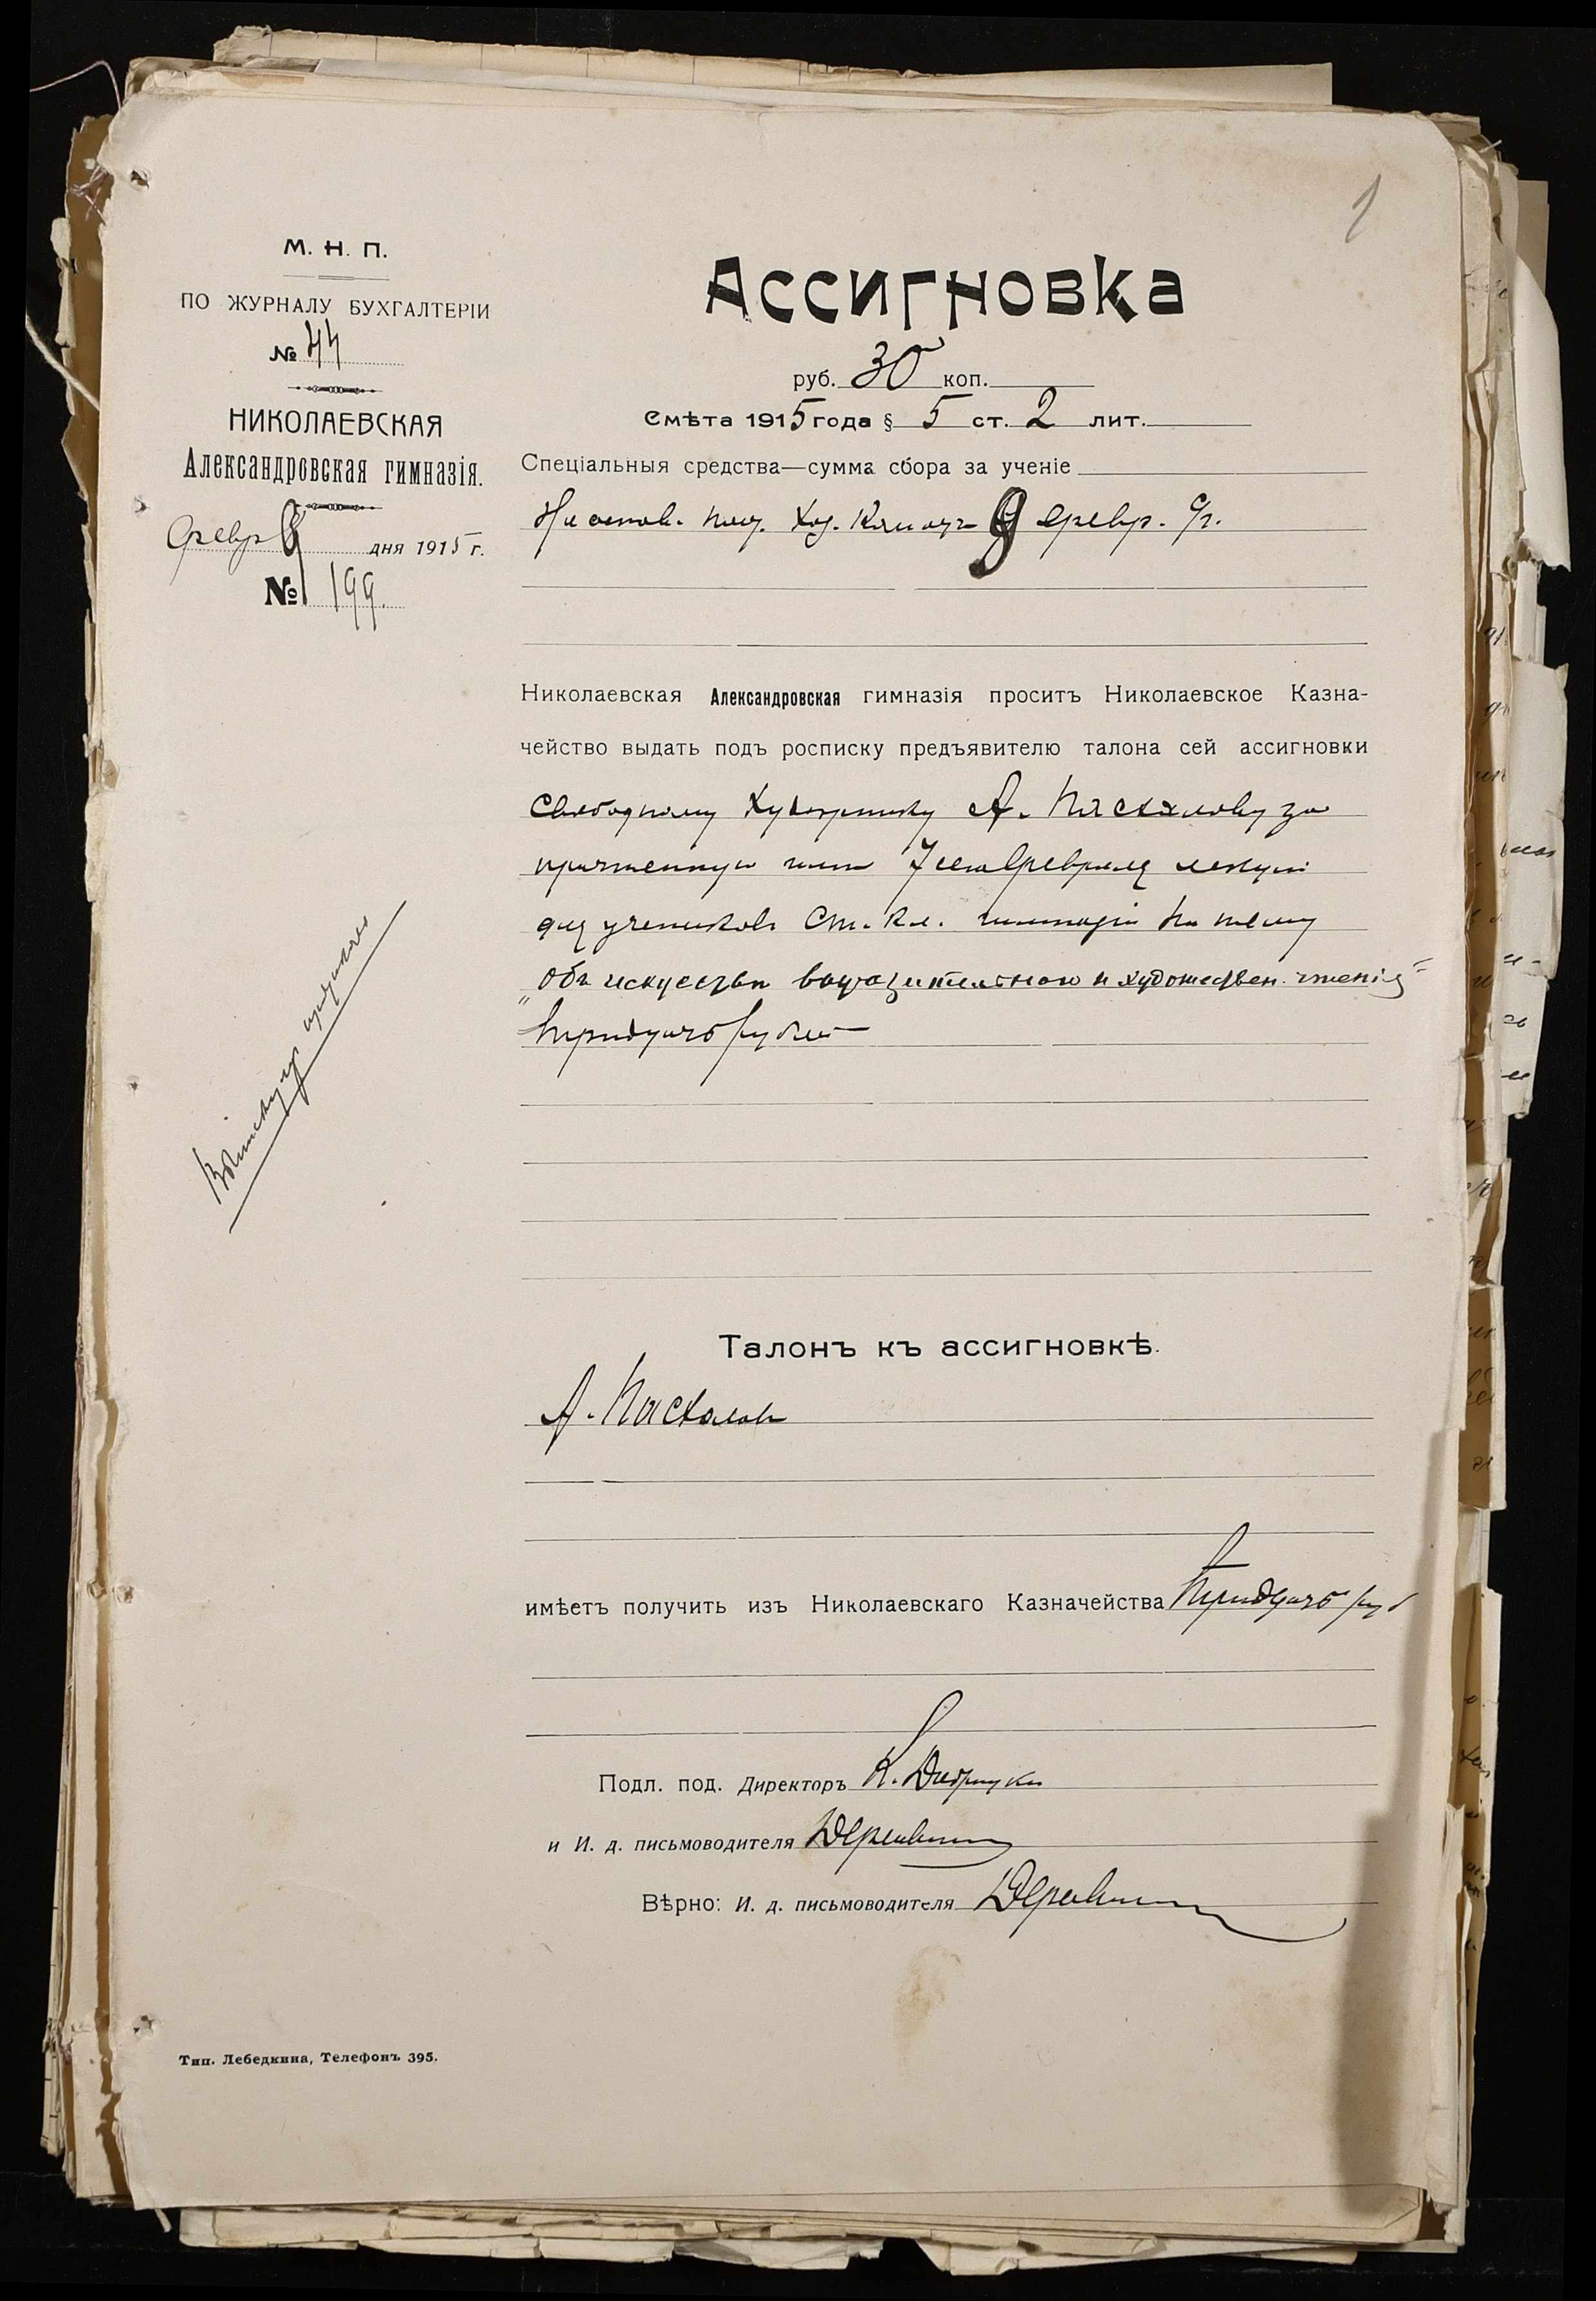 1
М. Н. П.
ПО ЖУРНАЛУ БУХГАЛТЕРІИ
№ 44
НИКОЛАЕВСКАЯ
Александровская гимназія.
Февр 9 дня 1915 г.
№ 199.
Ассигновка
руб. 30 коп.
Смѣта 1915 года § 5 ст. 2 лит.
Спеціальныя средства—сумма сбора за ученіе
На основ. Ком. 9 февр. с/г.
Николаевская Александровская гимназія проситъ Николаевское Казна-
чейство выдать подъ росписку предъявителю талона сей ассигновки
Свободному Художнику А. Паскалову за
прочтенную имъ 7 сего февраля лекцію
для учениковъ Ст. кл. гимназіи на тему
„Объ искусствѣ выразительнаго и художествен. чтенія"
тридцать рублей
Талонъ къ ассигновкѣ.
А. Паскаловъ
имѣетъ получить изъ Николаевскаго Казначейства тридцать руб
Подл. под. Директоръ К.
и И. д. письмоводителя
Вѣрно: И. д. письмоводителя
Тип. Лебедкина, Телефонъ 395.